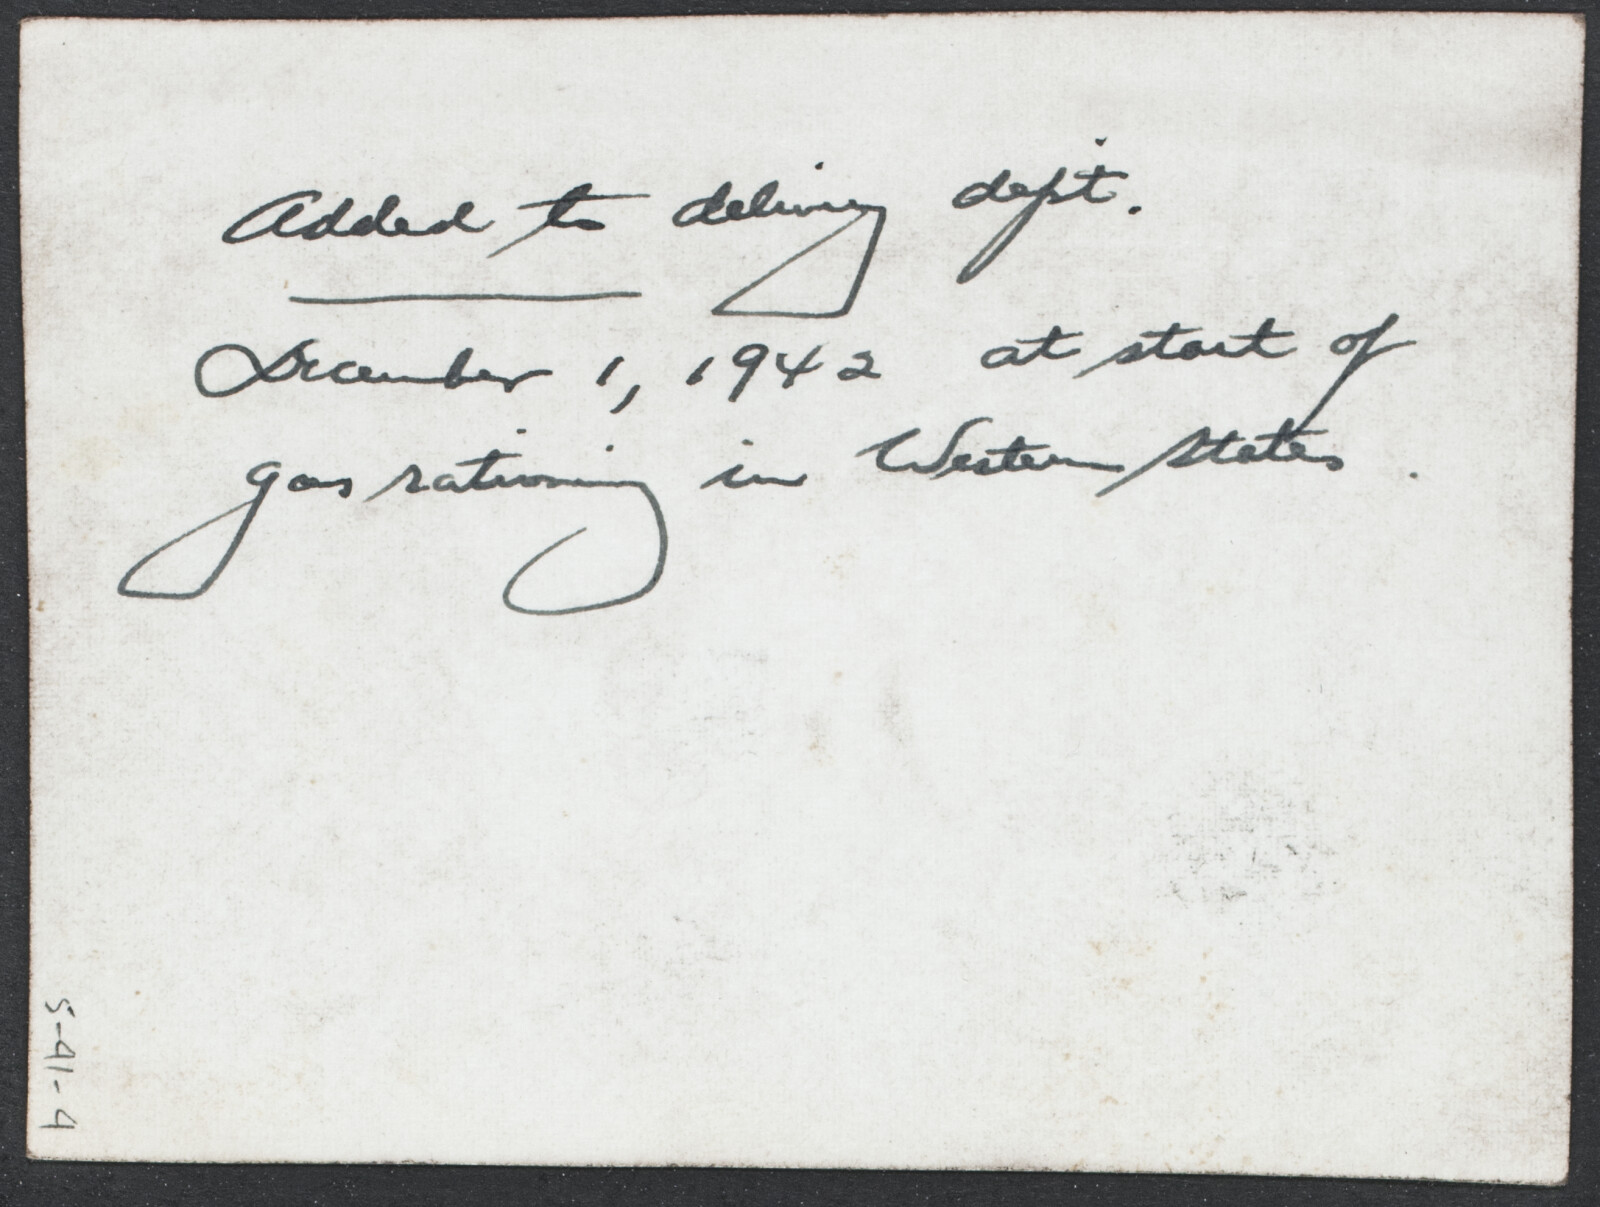 Added to delivery dept.
December 1, 1942 at start of
gas rationing in Western States.
S-41-4